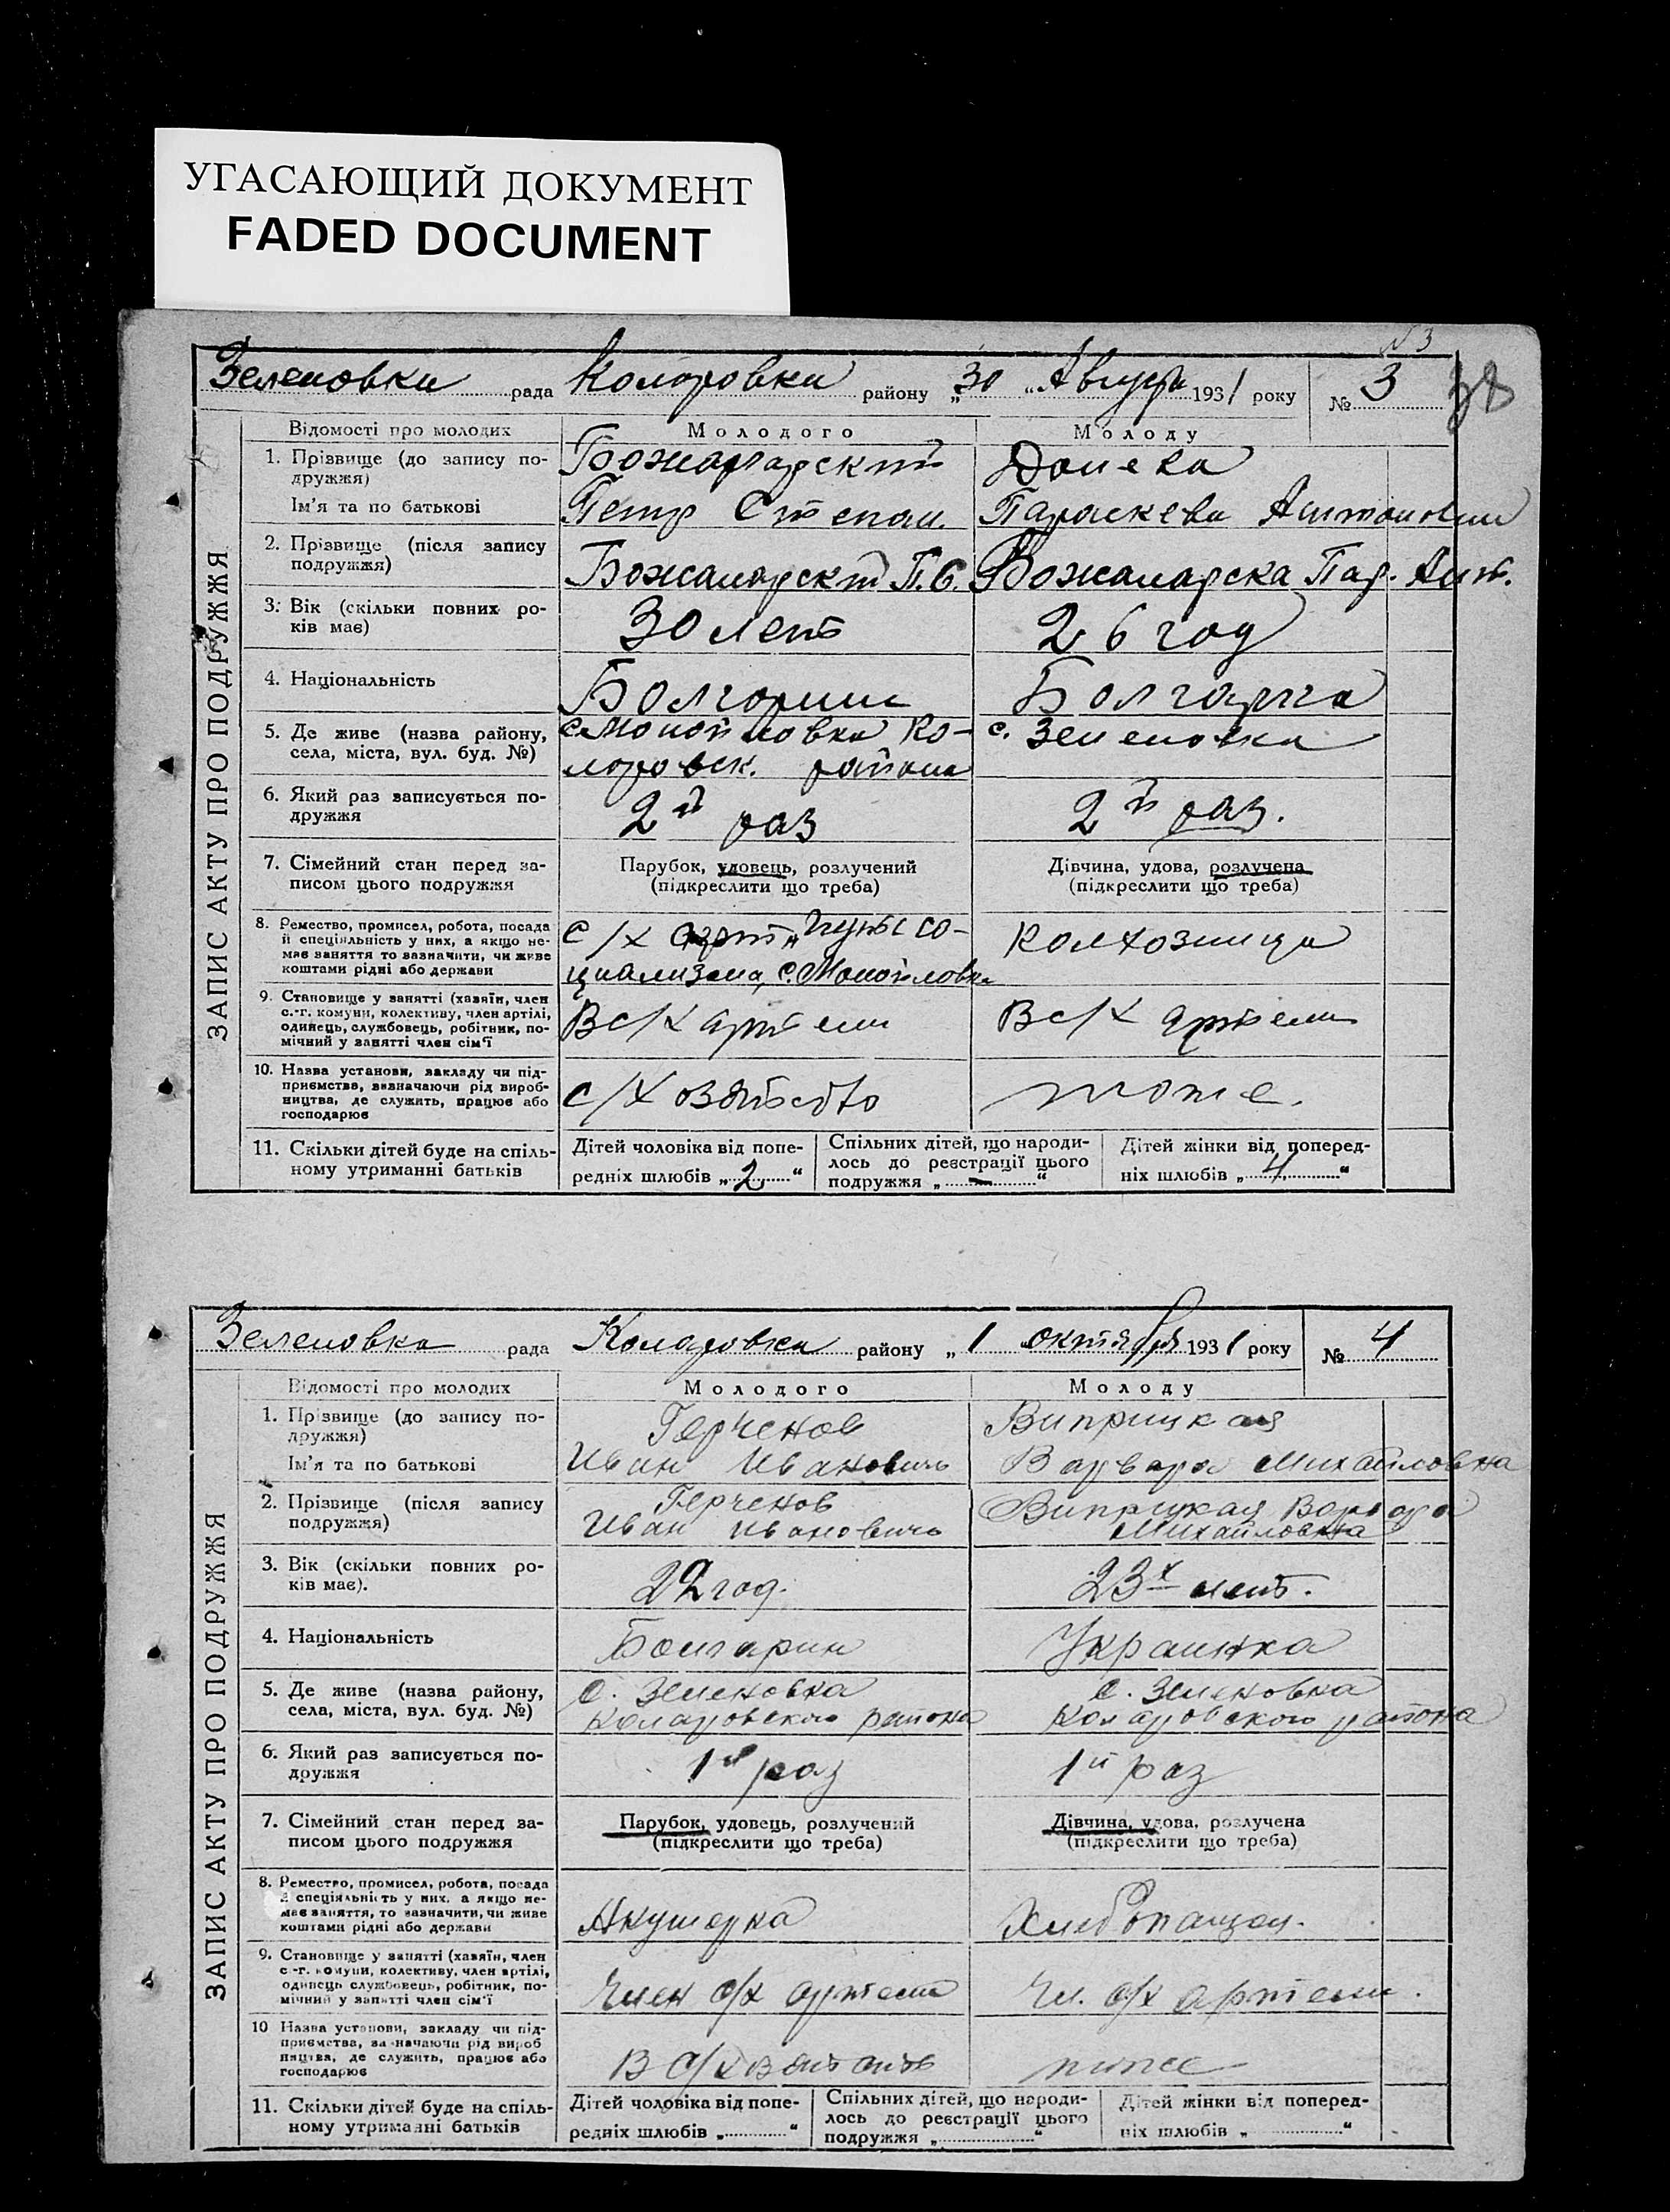 УГАСАЮЩИЙ ДОКУМЕНТ
FADED DOCUMENT
№ 3
Зеленовки рада Коларовки району „30 „ Августа 1931 року № 3
38
ЗАПИС АКТУ ПРО ПОДРУЖЖЯ
Відомості про молодих Молодого Молоду
1. Прізвище (до запису по-
дружжя) Донека
Ім'я та по батькові Петр Степан. Параскева Антоновна
2. Прізвище (після запису
подружжя) П. С. Пар. Ант.
3. Вік (скільки повних ро-
ків має) 30 лет 26 год
4. Національність Болгорин Болгарка
5. Де живе (назва району, с. Манойловка Ко- с. Зеленовка
села, міста, вул. буд. №) ларовск. района
6. Який раз записується по-
дружжя 2й раз 2й раз.
7. Сімейний стан перед за- Парубок, удовець, розлучений Дівчина, удова, розлучена
писом цього подружжя (підкреслити що треба) (підкреслити що треба)
8. Ремество, промисел, робота, посада
й спеціяльність у них, а якщо не- с/х арт. „Путь со- колхозница
має заняття то зазначити, чи живе
коштами рідні або держави циализма, с. Манойловка
9. Становище у занятті (хазяїн, член
с.-г. комуни, колективу, член артілі,
одинець, службовець, робітник, по- В с/х артели В с/х артели
мічний у занятті член сім'ї
10. Назва установи, закладу чи під-
приємства, зазначаючи рід вироб-
ництва, де служить, працює або с/х тоже.
господарює
11. Скільки дітей буде на спіль- Дітей чоловіка від попе- Спільних дітей, що народи- Дітей жінки від поперед-
ному утриманні батьків редніх шлюбів „ 2 “ лось до реєстрації цього ніх шлюбів „ 4 “
подружжя „ — “
Зеленовка рада Коларовка району „ 1 октября 1931 року № 4
ЗАПИС АКТУ ПРО ПОДРУЖЖЯ
Відомості про молодих Молодого Молоду
1. Прізвище (до запису по- Герченов Виприцкая
дружжя)
Ім'я та по батькові Иван Ивановичь Варвара Михайловна
2. Прізвище (після запису Герченов Виприцкая Варвара
подружжя) Иван Ивановичь Михайловна
3. Вік (скільки повних ро-
ків має). 22 год. 23х лет.
4. Національність Болгарин Украинка
5. Де живе (назва району, с. Зеленовка с. Зеленовка
села, міста, вул. буд. №) Коларовского района Коларовского района
6. Який раз записується по-
дружжя 1й раз 1й раз
7. Сімейний стан перед за- Парубок, удовець, розлучений Дівчина, удова, розлучена
писом цього подружжя (підкреслити що треба) (підкреслити що треба)
8. Ремество, промисел, робота, посада
й спеціяльність у них, а якщо не-
має заняття, то зазначити, чи живе
коштами рідні або держави Акушерка
9. Становище у занятті (хазяїн, член
с.-г. комуни, колективу, член артілі,
одинець службовець, робітник, по- Член с/х артели Чл. с/х артели.
мічний у занятті член сім'ї
10 Назва установи, закладу чи під-
приємства, зазначаючи рід вироб
ництва, де служить, працює або В с/х тоже
господарює
11. Скільки дітей буде на спіль- Дітей чоловіка від попе- Спільних дітей, що народи- Дітей жінки від поперед-
ному утриманні батьків редніх шлюбів „ “ лось до реєстрації цього ніх шлюбів „ “
подружжя „ “